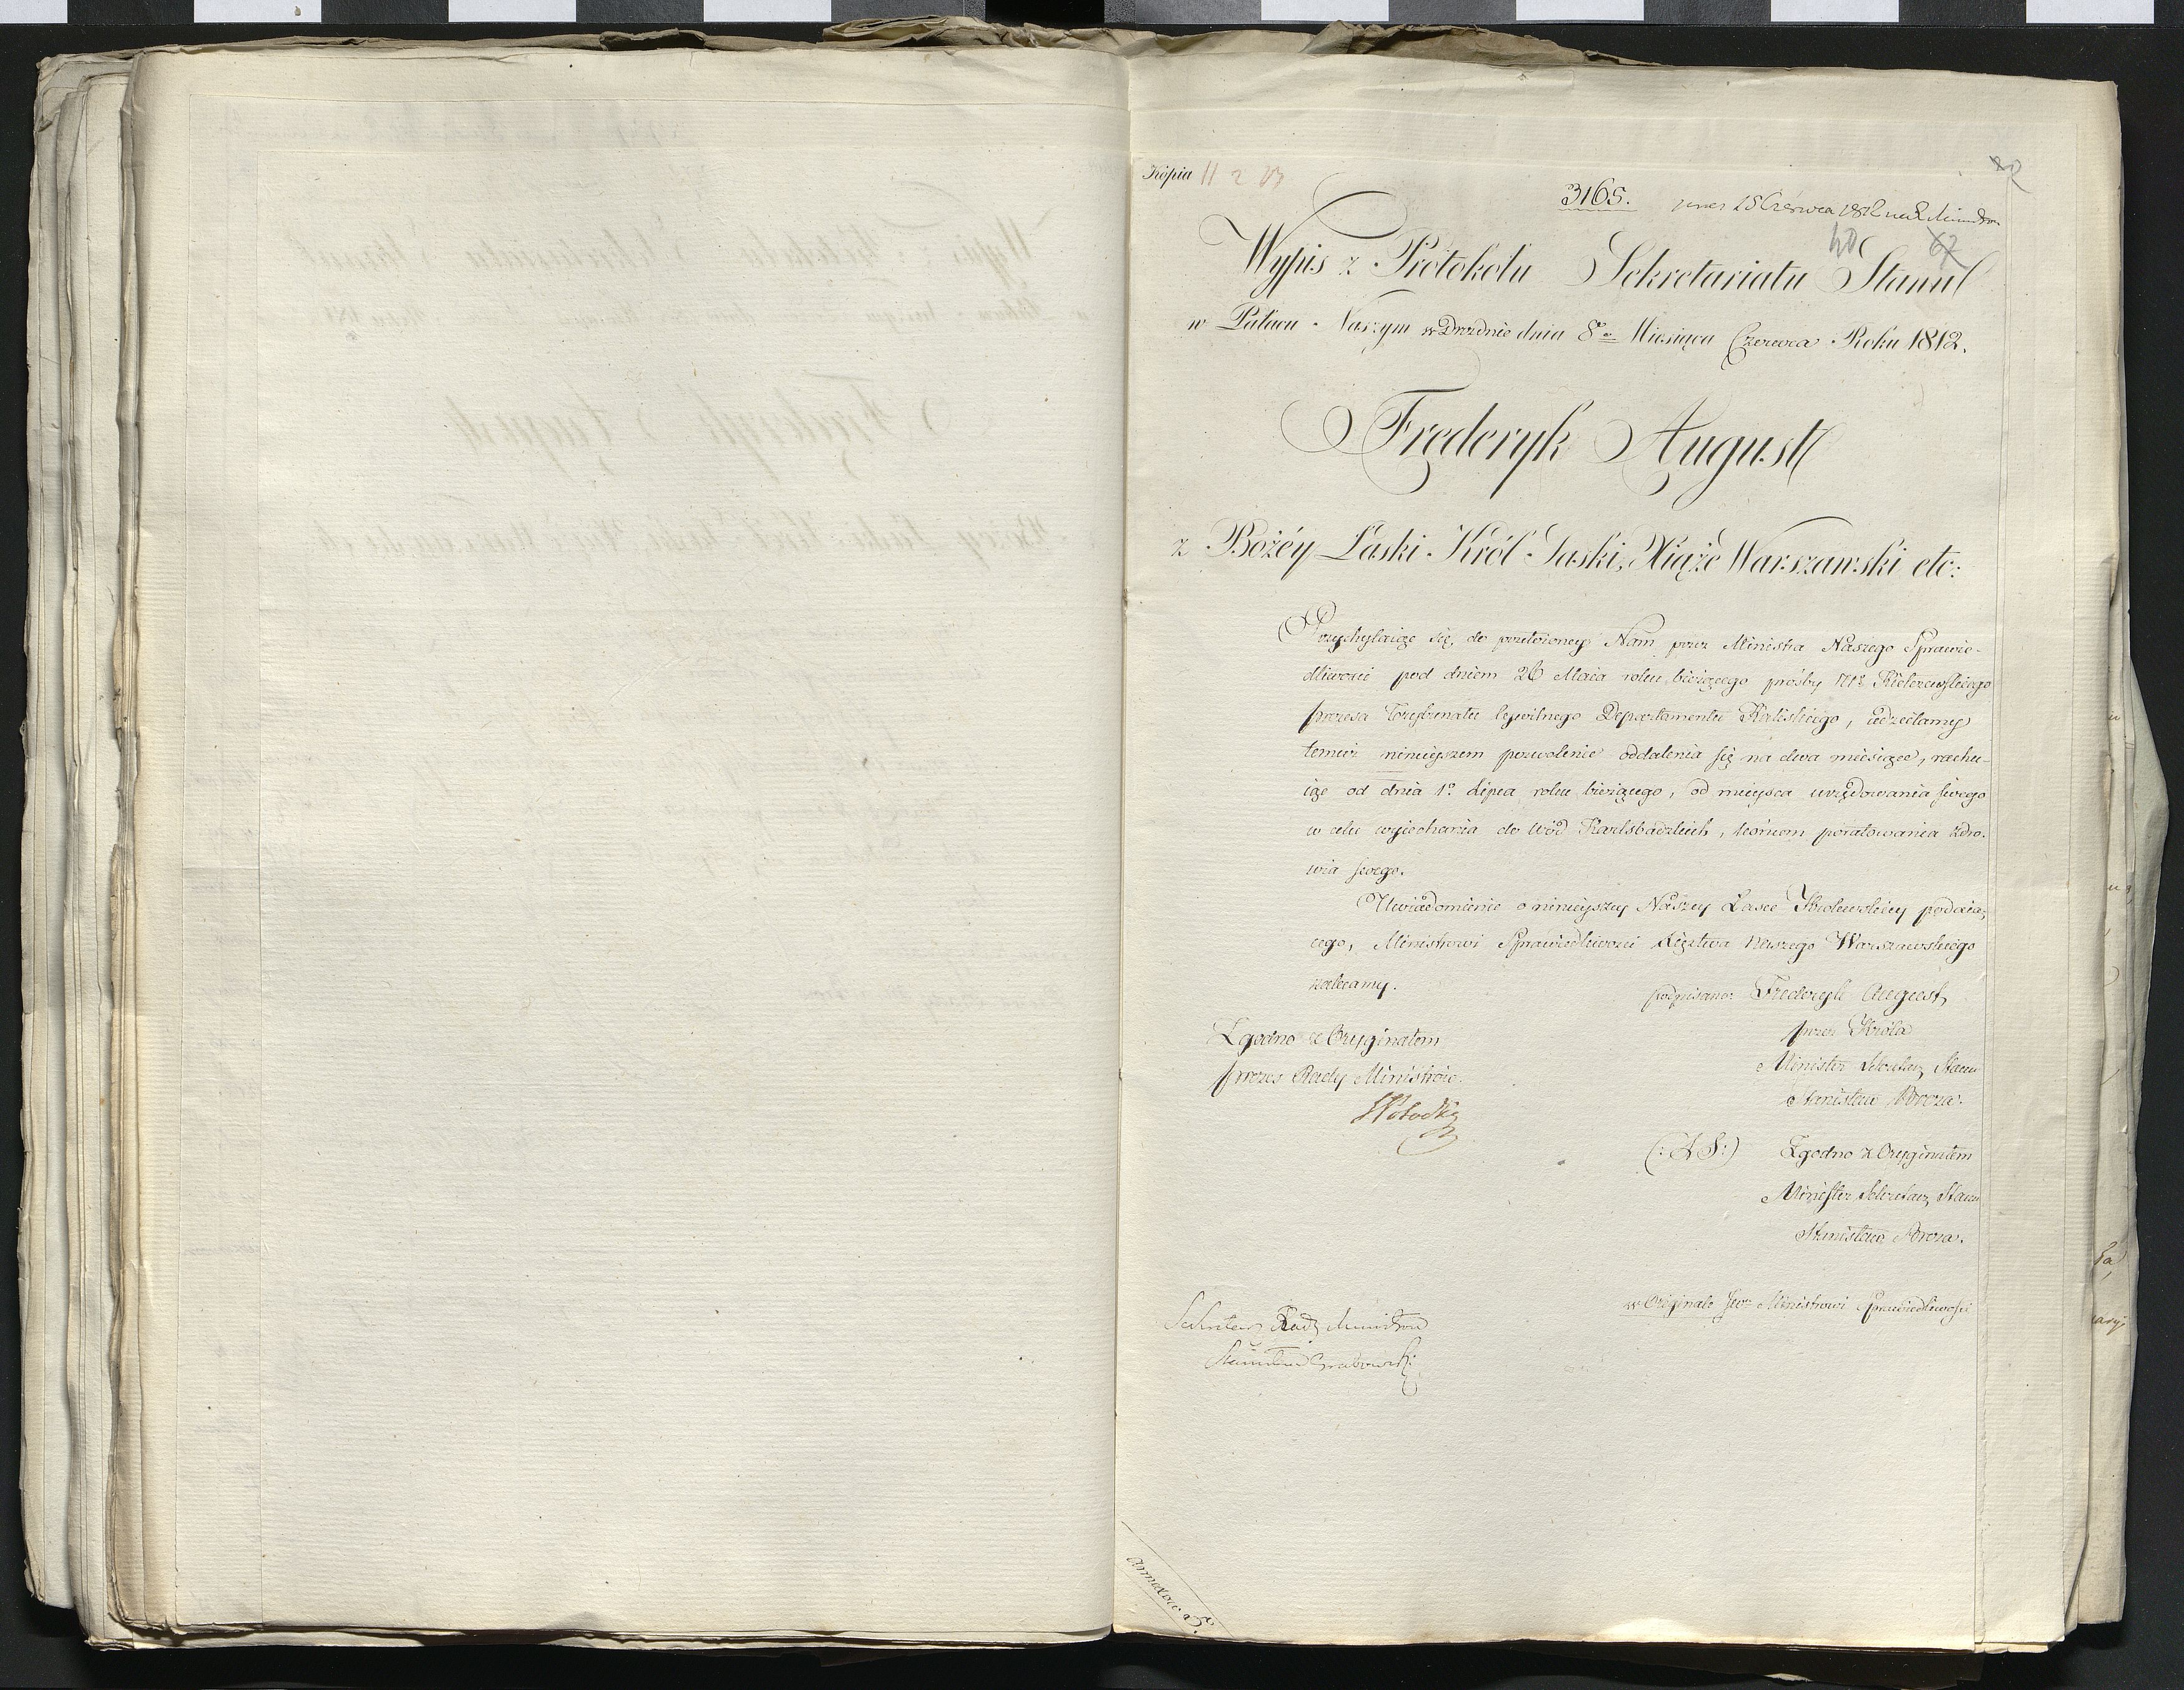 Kópia II 2 83
3165.
40 62
Wypis z Protokołu Sekretariatu Stanu
w Pałacu Naszym w Dreznie dnia 8o Miesiąca Czerwca Roku 1812.
Frederyk August
z Bożéy Łaski Król Saski, Xiąże Warszawski etc:
Przychylaiąc się do przełożoney Nam przez Ministra Naszego Sprawie-
dliwości pod dniem 26 Maia roku bieżącego prośby Ur. Kiełczewskiego
prezesa Trybunału Cywilnego Departamentu Kaliskiego, udzielamy
temuż ninieyszem pozwolenie oddalenia się na dwa miesiące, rachu-
iąc od dnia 1o Lipca roku bieżącego, od mieysca urzędowania swego
w celu wyiechania do wód Karlsbadzkich, końcem poratowania zdro-
wia swego.
Uwiadomienie o ninieyszey Naszey Łasce Królewskiey podaią-
cego, Ministrowi Sprawiedliwości Xięztwa Naszego Warszawskiego
zalecamy.
podpisano: Frederyk August
przez Króla
Minister Sekretarz Stanu
Stanisław Breza.
Zgodno z Oryginałem
prezes Rady Ministrów.
(:L S:) Zgodno z Oryginałem
Minister Sekretarz Stanu
Stanisław Breza.
w Originale JWu Ministrowi Sprawiedliwości
Sekretarz Rady Ministrów
Stanisław Grabowski
annexow 5.